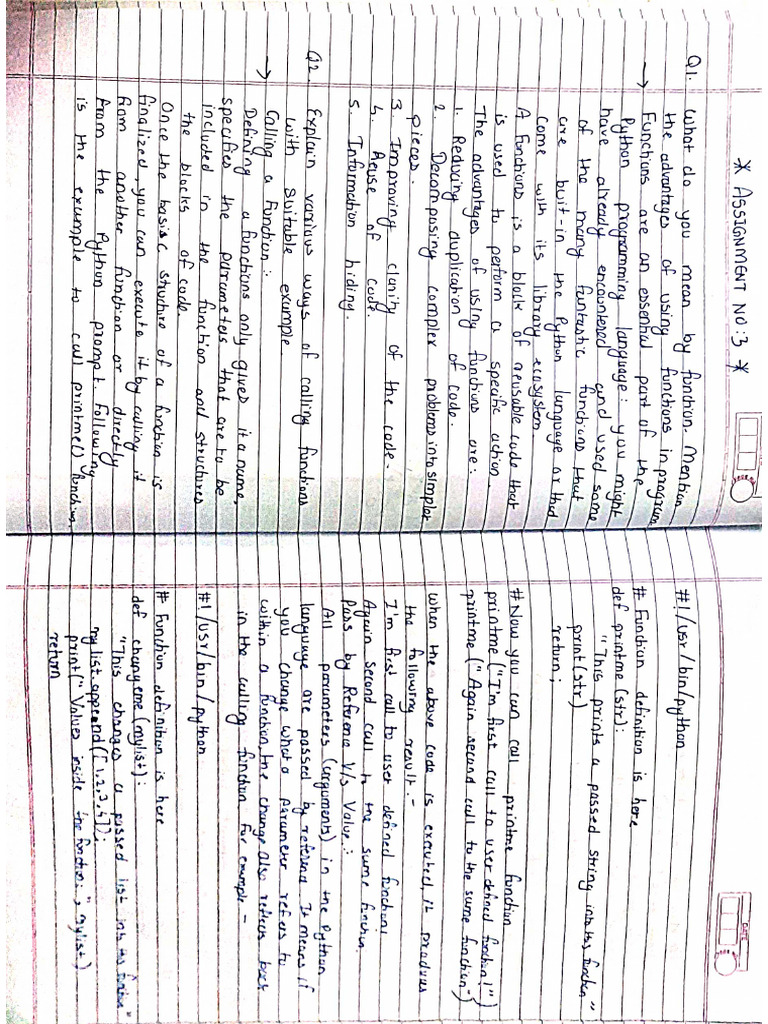 * ASSIGNMENT NO:3 *
Q1. What do you mean by function. Mention
the advantages of using functions in program
→ Functions are an essential part of the
Python programming language: you might
have already encountered and used some
of the many fantastic functions that
are built-in the Python language or that
Come with its library ecosystem.
A Functions is a block of reusable code that
is used to perform a specific action.
The advantages of using functions are:
1. Reducing duplication of code.
2. Decomposing complex problems into simpler
pieces.
3. Improving clarity of the code.
4. Reuse of code.
5. Information hiding.
Q2. Explain various ways of calling functions
with suitable example
→ Calling a Function:
Defining a functions only gives it a name,
specifies the parameters that are to be
included in the function and structures
the blocks of code.
Once the basisc structure of a function is
finalized, you can execute it by calling it
from another function or directly
from the Python prompt. Following
is the example to call printme() function.
#!/usr/bin/python
# Function definition is here
def printme (str):
"This prints a passed string into this function"
print (str)
return;
# Now you can call printme function
printme ("I'm first call to user defined function!")
printme ("Again second call to the same function")
When the above code is executed, it produces
the following result:-
I'm first call to user defined function!
Again second call to the same function
Pass by Reference V/s Value:
All parameters (arguments) in the Python
language are passed by reference. It means if
you change what a parameter refers to
within a function, the change also reflects back
in the calling function for example -
#!/usr/bin/python
# Function definition is here
def changeme (mylist):
"This changes a passed list into this function"
mylist.append([1,2,3,4]);
print("Values inside the function: ", mylist)
return
DATE